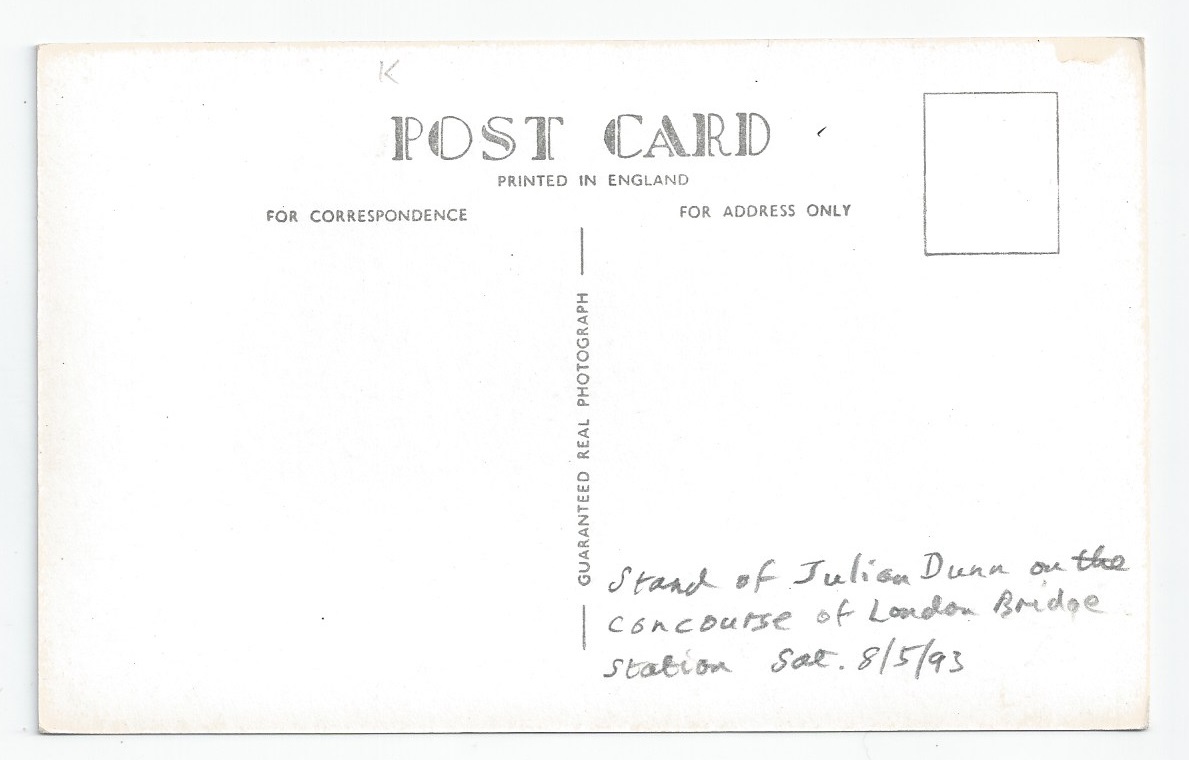 K
POST CARD
PRINTED IN ENGLAND
FOR CORRESPONDENCE
FOR ADDRESS ONLY
GUARANTEED REAL PHOTOGRAPH
Stand of Julian Dunn on the
concourse of London Bridge
Station Sat. 8/5/93